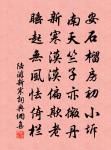 安石榴房初小坼
南天竺子亦微丹
新寒漠漠偏欺老
睡起無風怯倚欄
陸游新寒詞典網集